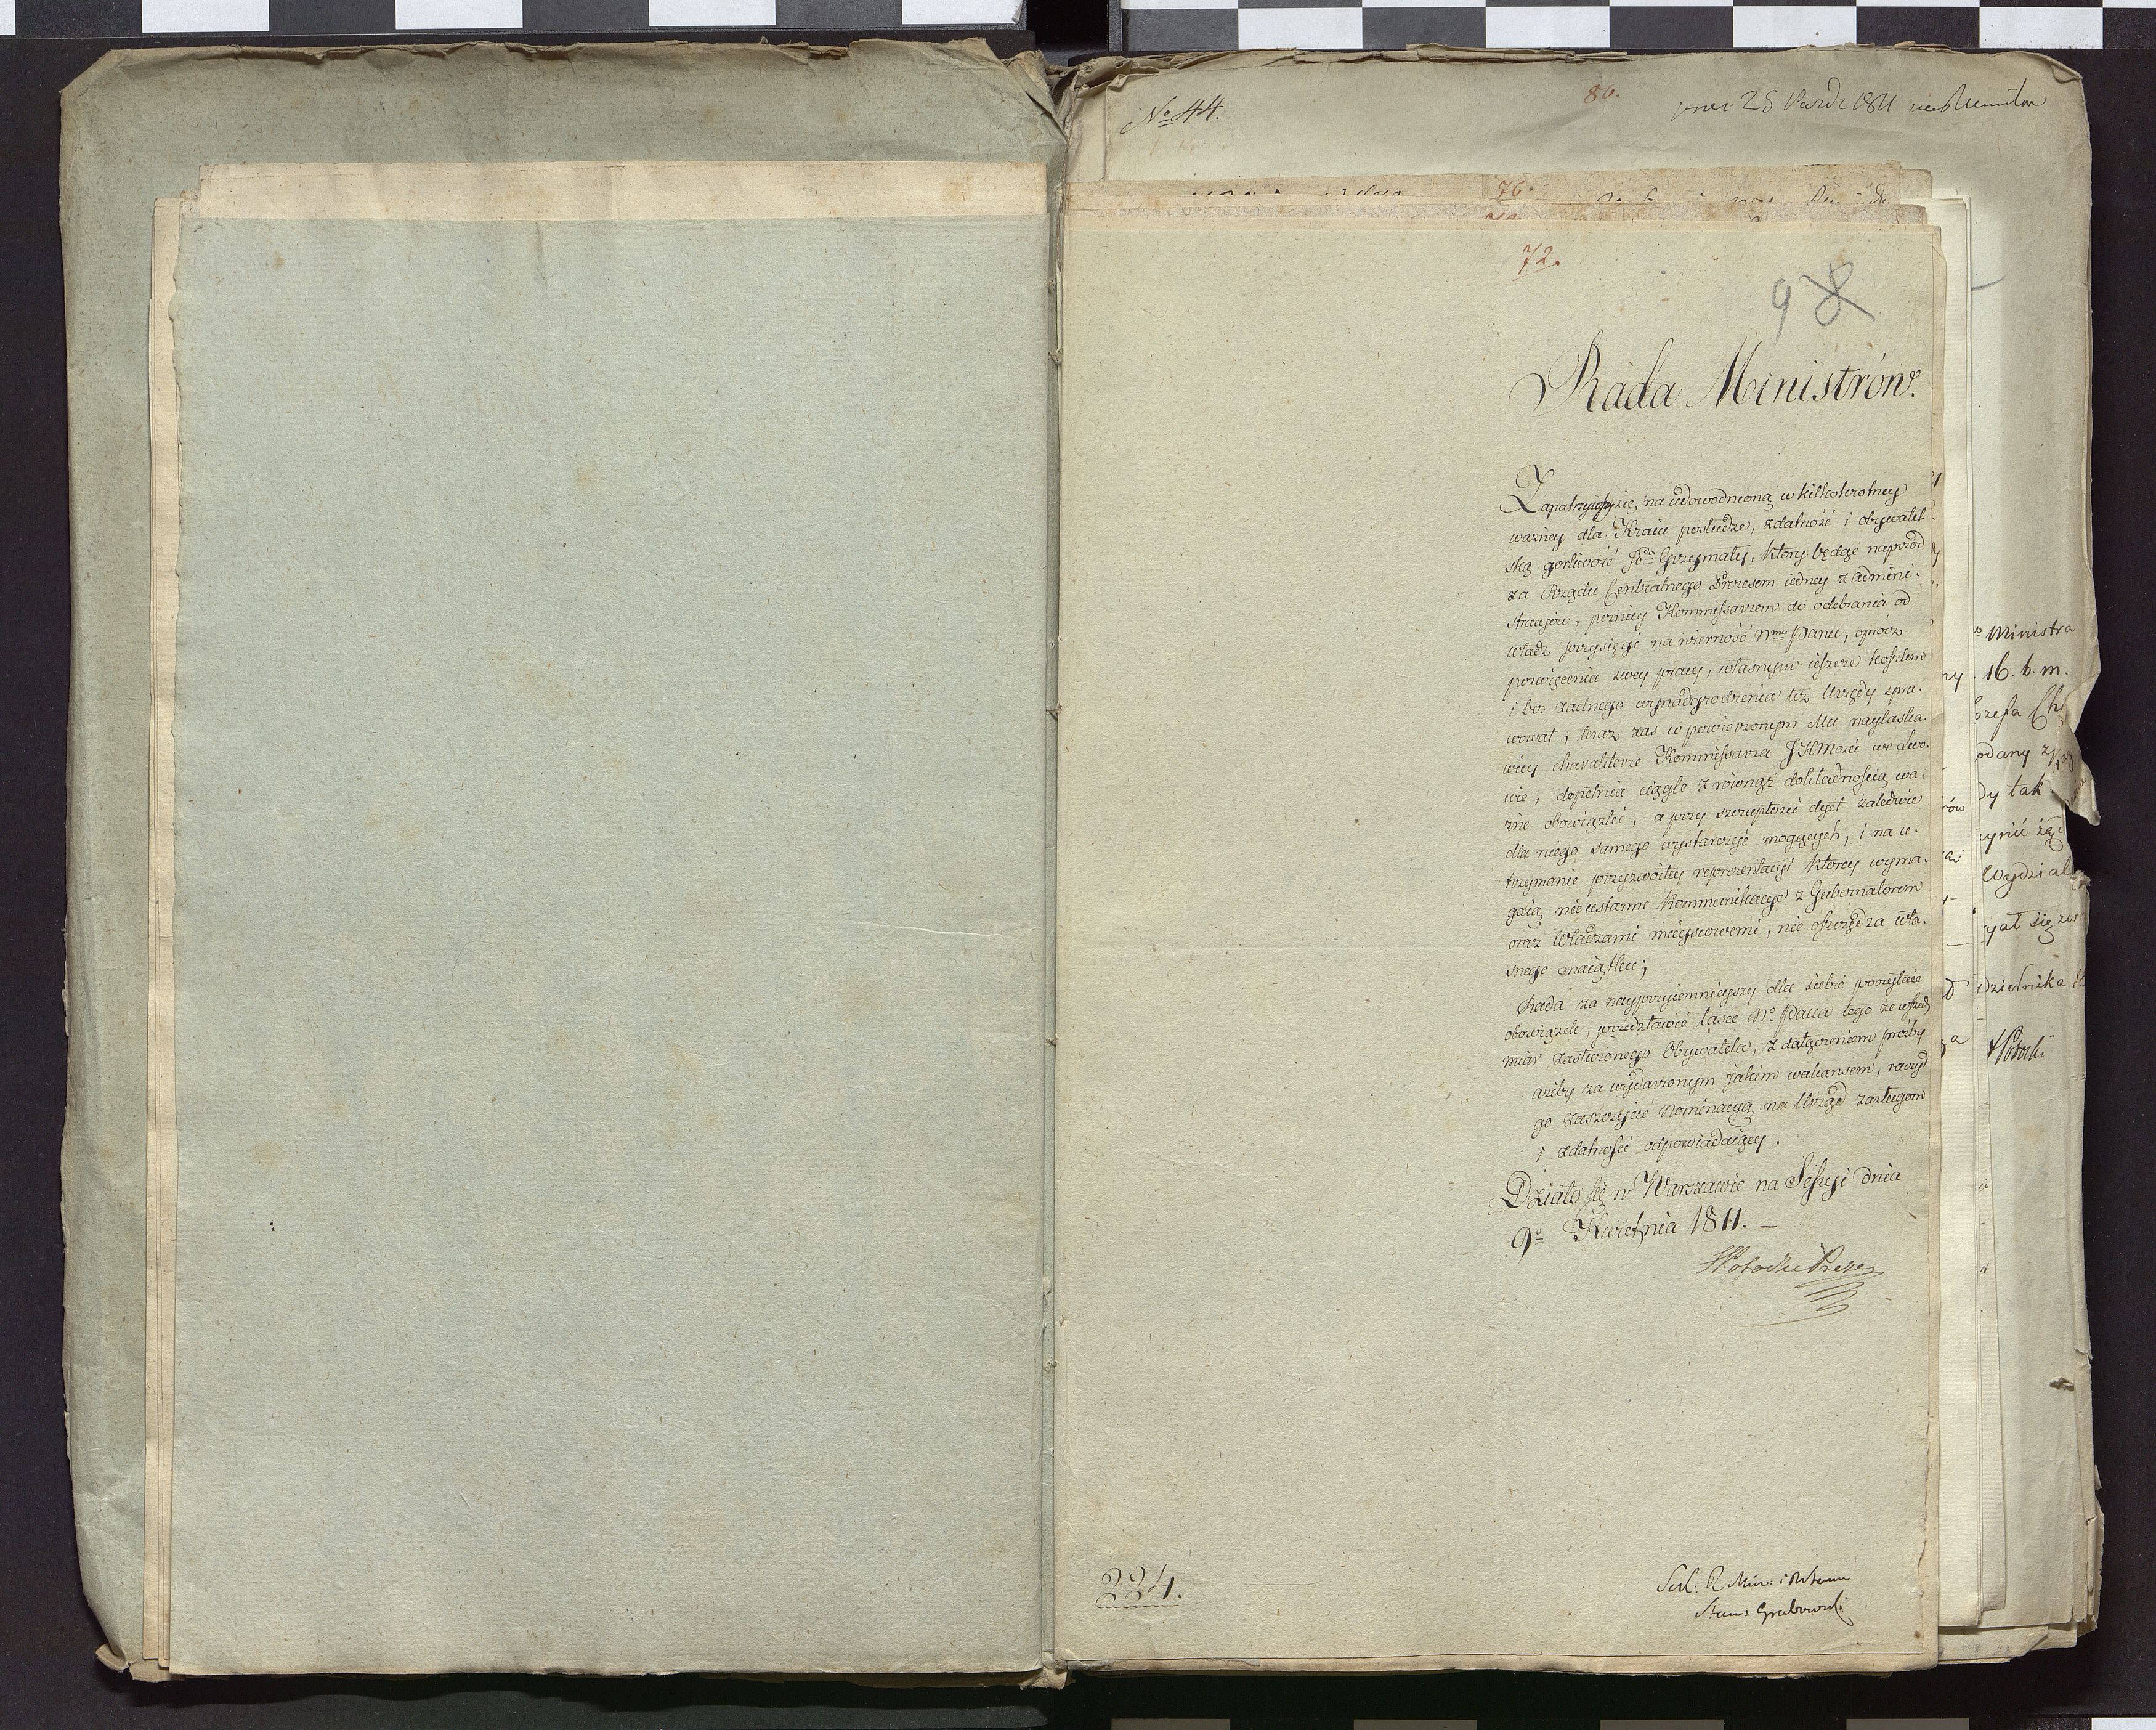 No 44.
86.
25 1811
76.
72.
98
Rada Ministrów.
Zapatrzywszy się, na udowodnioną w kilkokrotney
ważney dla Kraiu posłudze, zdatność i obywatel-
ską gorliwość JPa Grzymały, który będąc naprzód
za Rządu Centralnego Prezesem iedney z Admini-
stracyów, pozniey Kommissarzem do odebrania od
władz przysięgi na wierność Nmu Panu, oprócz
poświęcenia swey pracy, własnym ieszcze kosztem
i bez żadnego wynadgrodzenia też Urzędy spra-
wował, teraz zas w powierzonym Mu nayłaska-
wiey charakterze Kommissarza JKMości we Lwo-
wie, dopełnia ciągle z równąż dokładnością wa-
żne obowiązki, a przy szczupłości dyet zaledwie
dla niego samego wystarczyć mogących, i na u-
trzymanie przyzwoitey reprezentacyi którey wyma-
gaią nieustanne kommunikacye z Gubernatorem
oraz Władzami mieyscowemi, nie oszczędza wła-
snego maiątku;
Rada za nayprzyiemnieyszy dla siebie poczytuie
obowiązek, przedstawić łasce No Pana tego ze wszech
miar zasłużonego Obywatela, z dołączeniem prośby
ażeby za wydarzonym jakim wakansem, raczył
go zaszczycić Nominacyą na Urząd zasługom
i zdatności odpowiadaiący.
Działo się w Warszawie na Sessyi dnia
9o Kwietnia 1811. —
SPotocki Prezes
224.
Sek: R Min: i R Stanu
Stanis Grabowski
Ministra
16. b. m.
ozefa Ch
odany z
dy tak
Wydzial
yał się
dziernika
SPotocki